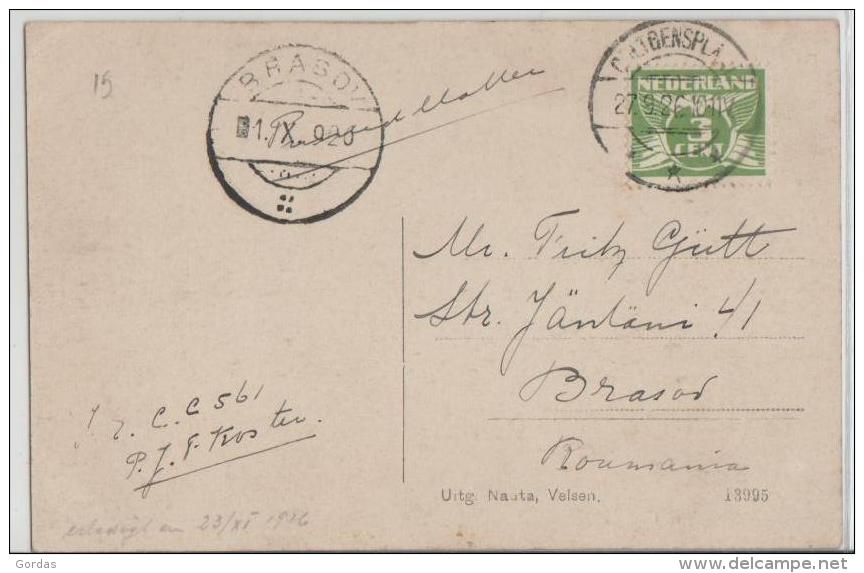 15
BRASOV
1. IX. 926
NEDERLAND
3
CENT
27.9.26.
Mr. Fritz Gütt
Str. Jäntäni 41
Brasov
Roumania
C.C 561
P. J. F. Koster.
Uitg. Nauta, Velsen.
13995
erledigt am 23/XI 1926
Gordas
delcampe.net